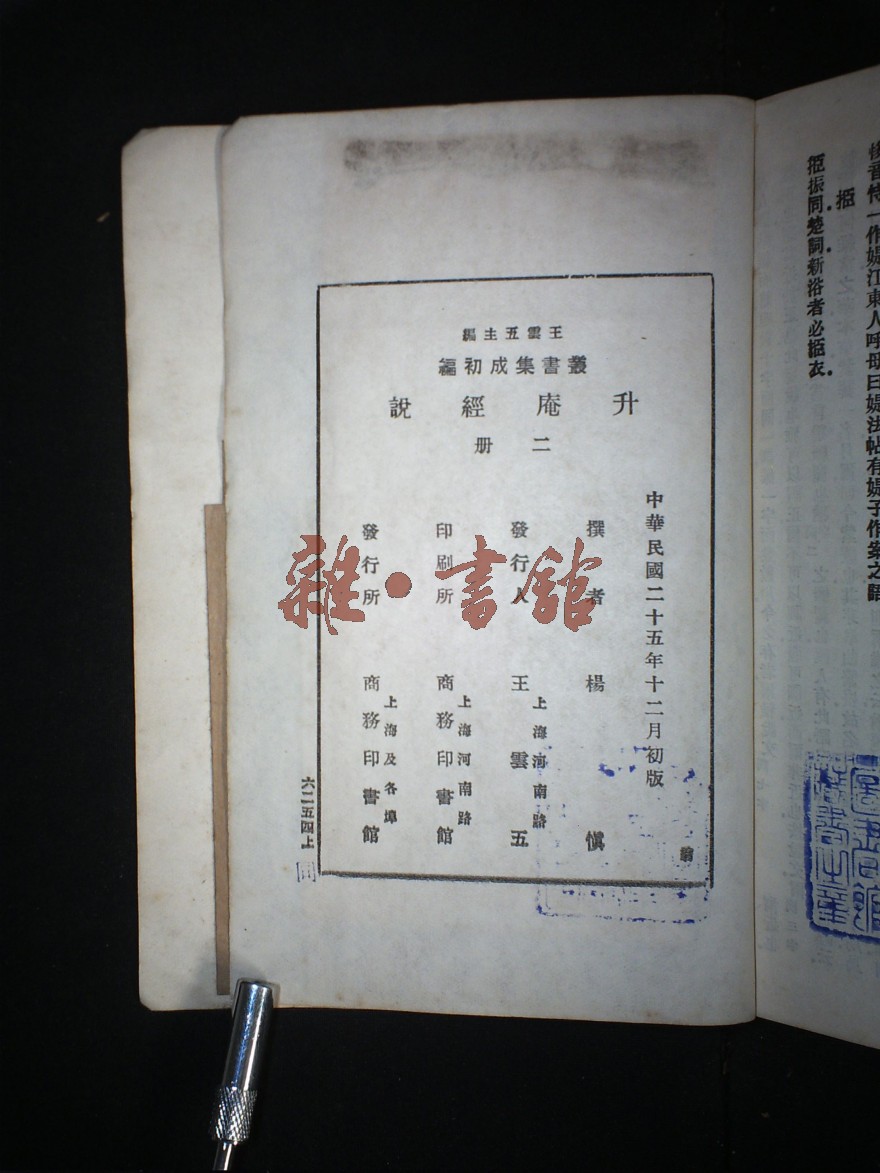 王雲五主編
叢書集成初編
升庵經說
二册
中華民國二十五年十二月初版
撰者 楊慎
發行人 王雲五
上海河南路
印刷所 商務印書館
上海河南路
發行所 商務印書館
上海及各埠
六二五四上
同
雜·書館
作媞江東人呼母曰媞法帖有媞子作案之語
挋
挋振同楚詞新浴者必挋衣